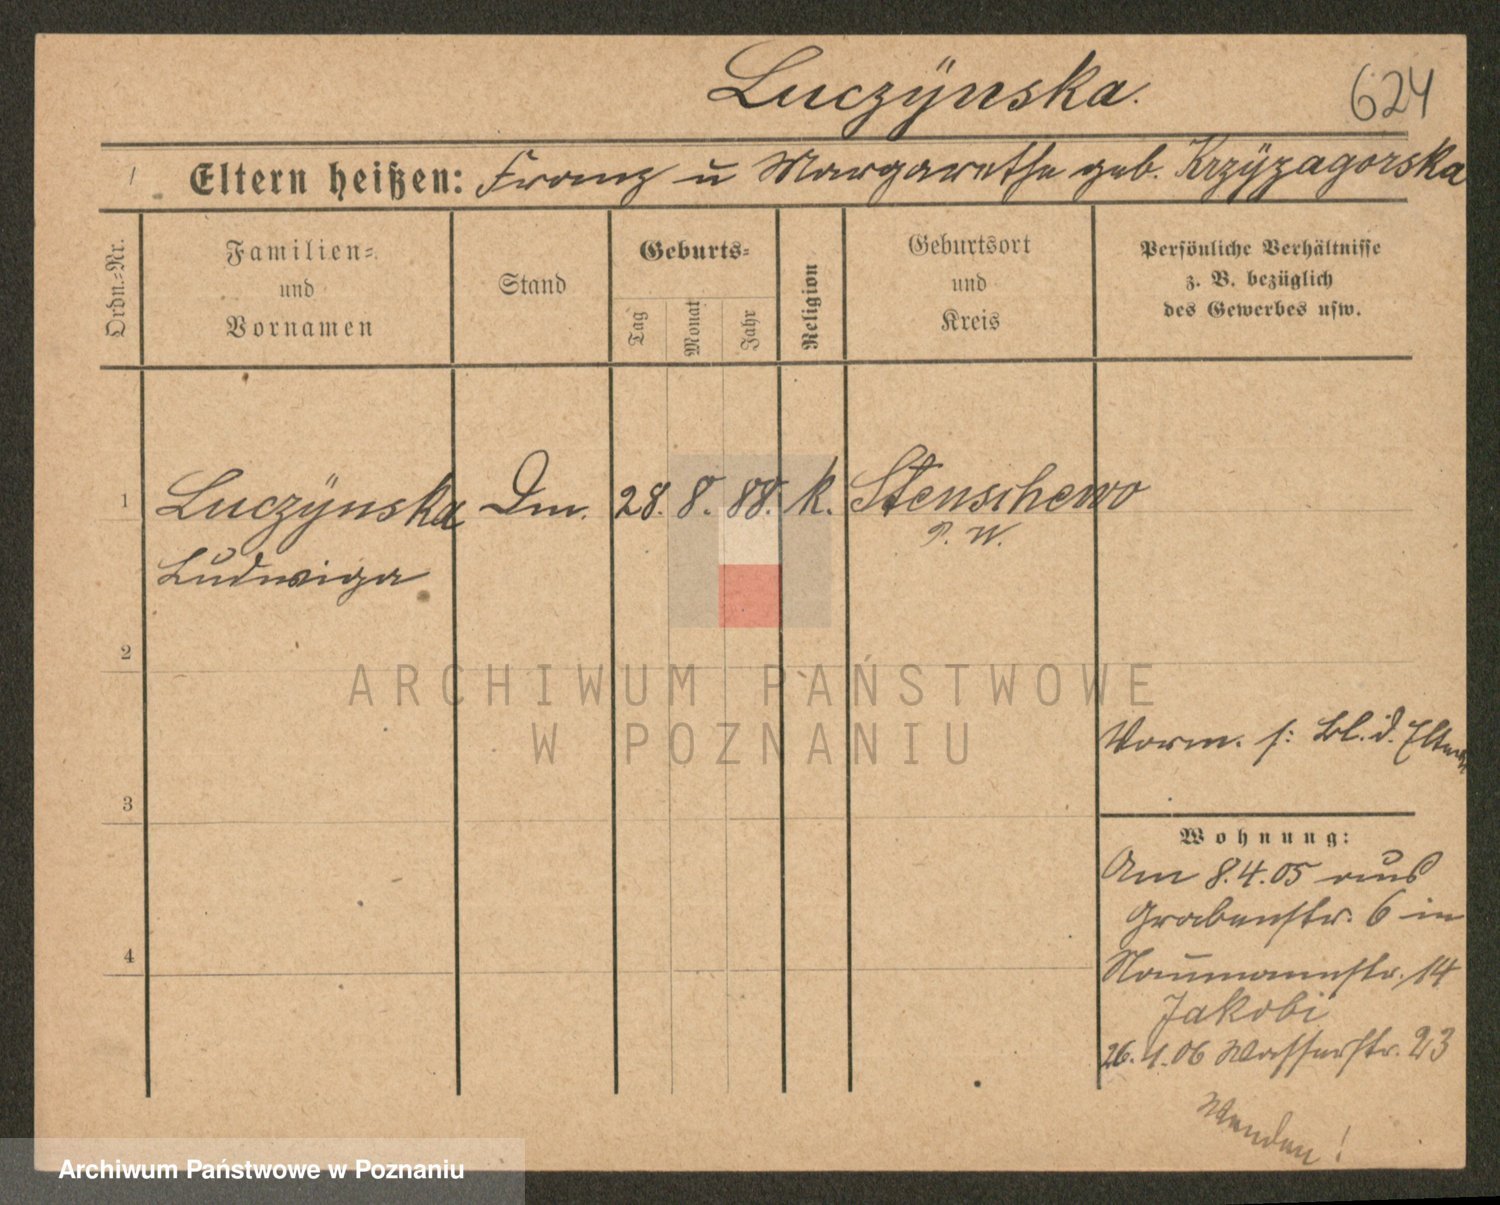 Luczÿnska.
624
1
Eltern heißen: Franz u Margarethe geb. Krzÿzagorska
Ordn.=Nr.
Familien=
und
Vornamen
Stand
Geburts=
Tag
Monat
Jahr
Religion
Geburtsort
und
Kreis
Persönliche Verhältnisse
z. B. bezüglich
des Gewerbes usw.
1 Luczÿnska Dm. 28. 8. 88. k. Stenschewo
P. W.
Ludwiga
2
ARCHIWUM PAŃSTWOWE
W POZNANIU
Vorm. s: Bl. d. Eltern
3
Wohnung:
Am 8.4.05 aus
Grabenstr. 6 in
Naumannstr. 14
4
Jakobi
26. 4. 06 Wasserstr. 23
Wenden!
Archiwum Państwowe w Poznaniu